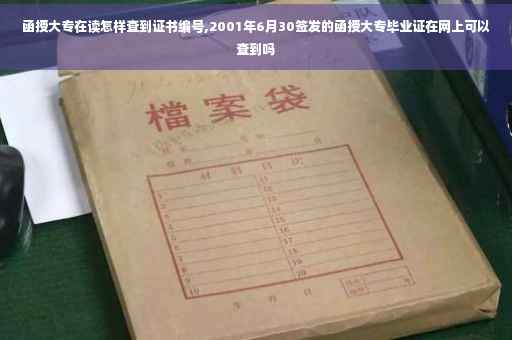 函授大专在读怎样查到证书编号,2001年6月30签发的函授大专毕业证在网上可以
查到吗
檔案袋
材料目次
1
2
3
4
5
6
7
8
9
10
11
12
13
14
15
16
17
18
19
20
年 月 日